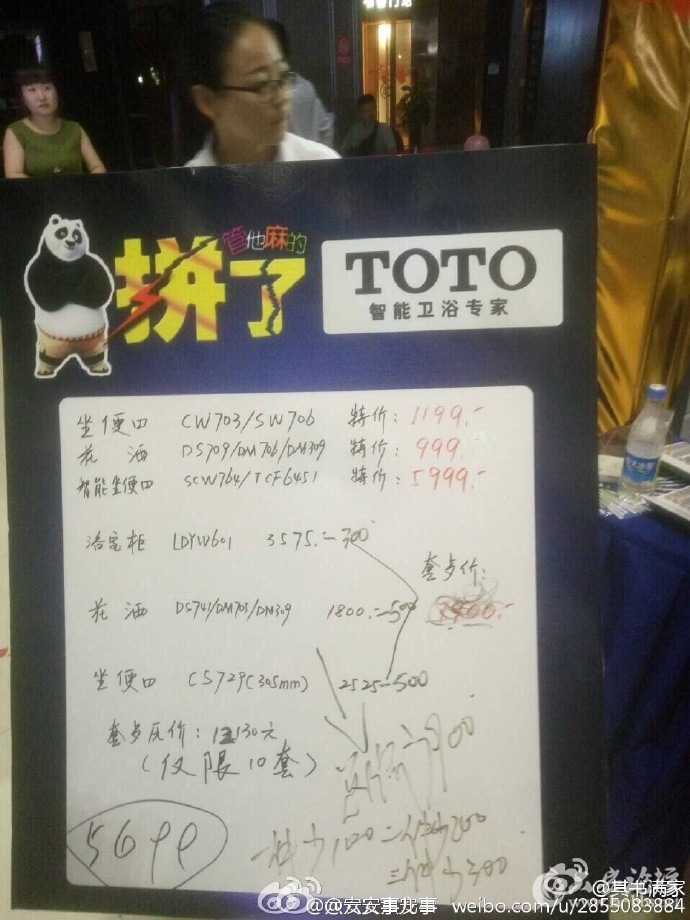 管他麻的
拼了
TOTO
智能卫浴专家
坐便四 CW703/SW706 特价：1199.-
花洒 DS709/DM706/DM309 特价：999.-
智能坐便四 SCW764/TCF6451 特价：5999.-
浴室柜 LDYW601 3575.-300
套步价：
花洒 DS741/DM703/DM309 1800.-500
坐便四 CS729(305mm) 2525-500
套步原价：
130元
(仅限10套)
5699
100
200
300
@安安事我事 weibo.com/u/2855083884
@其书满家